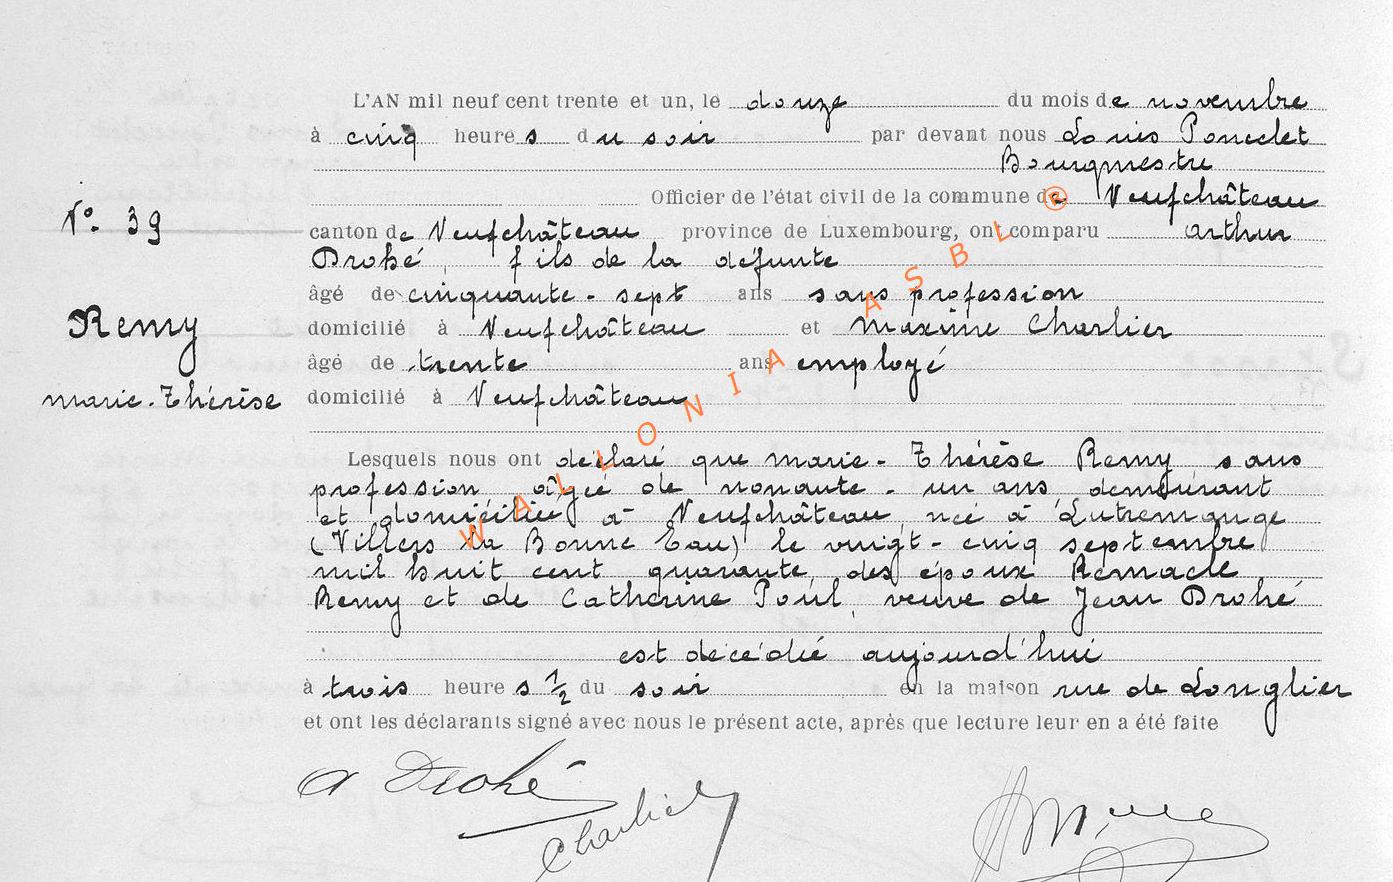 L'AN mil neuf cent trente et un, le douze du mois de novembre
à cinq heures du soir par devant nous Louis Poncelet
Bourgmestre
Officier de l'état civil de la commune de Neufchâteau
N° 39
canton de Neufchâteau province de Luxembourg, ont comparu arthur
Drohé, fils de la défunte
âgé de cinquante-sept ans sans profession
Remy
domicilié à Neufchâteau et Maxime Charlier
âgé de trente ans employé
marie-Thérèse
domicilié à Neufchâteau
Lesquels nous ont déclaré que marie-Thérèse Remy, sans
profession, âgée de nonante-un ans, demeurant
et domiciliée à Neufchâteau, née à Lutremange
(Villers la Bonne Eau) le vingt-cinq septembre
mil huit cent quarante, des époux Remacle
Remy et de Catherine Poul, veuve de Jean Drohé
est décédée aujourd'hui
à trois heures 1/2 du soir en la maison rue de Longlier
et ont les déclarants signé avec nous le présent acte, après que lecture leur en a été faite
A Drohé
Charlier
WALLONIA ASBL ®